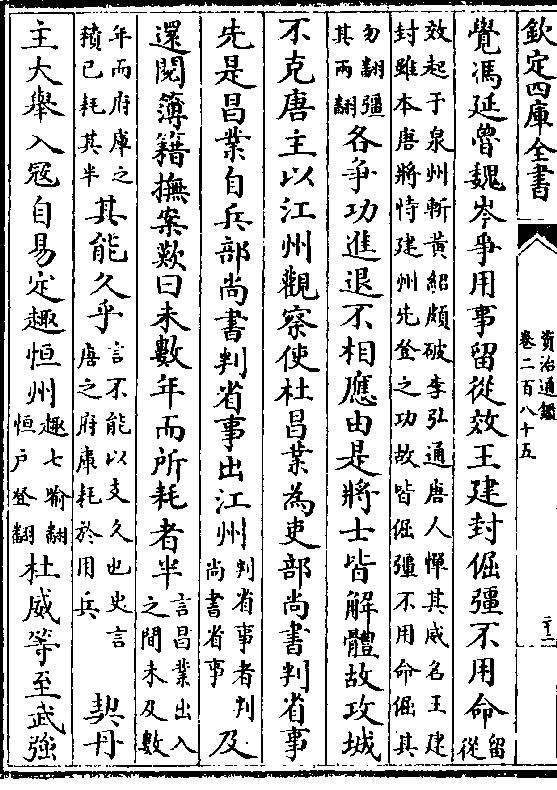 欽定四庫全書
資治通鑑
卷二百八十五
覺馮延魯魏岑爭用事留從效王建封倔彊不用命留從
效起于泉州斬黃紹頗破李弘通唐人憚其威名王建
封雖本唐將恃建州先登之功故皆倔彊不用命倔其
勿翻彊其兩翻各爭功進退不相應由是將士皆解體故攻城
不克唐主以江州觀察使杜昌業為吏部尚書判省事
先是昌業自兵部尚書判省事出江州判省事者判尚書省事及
還閱簿籍撫案歎曰未數年而所耗者半言昌業出入之間未及數
年而府庫之積已耗其半其能久乎言不能以支久也史言唐之府庫耗於用兵契丹
主大舉入寇自易定趣恒州趣七喻翻恒戶登翻杜威等至武強